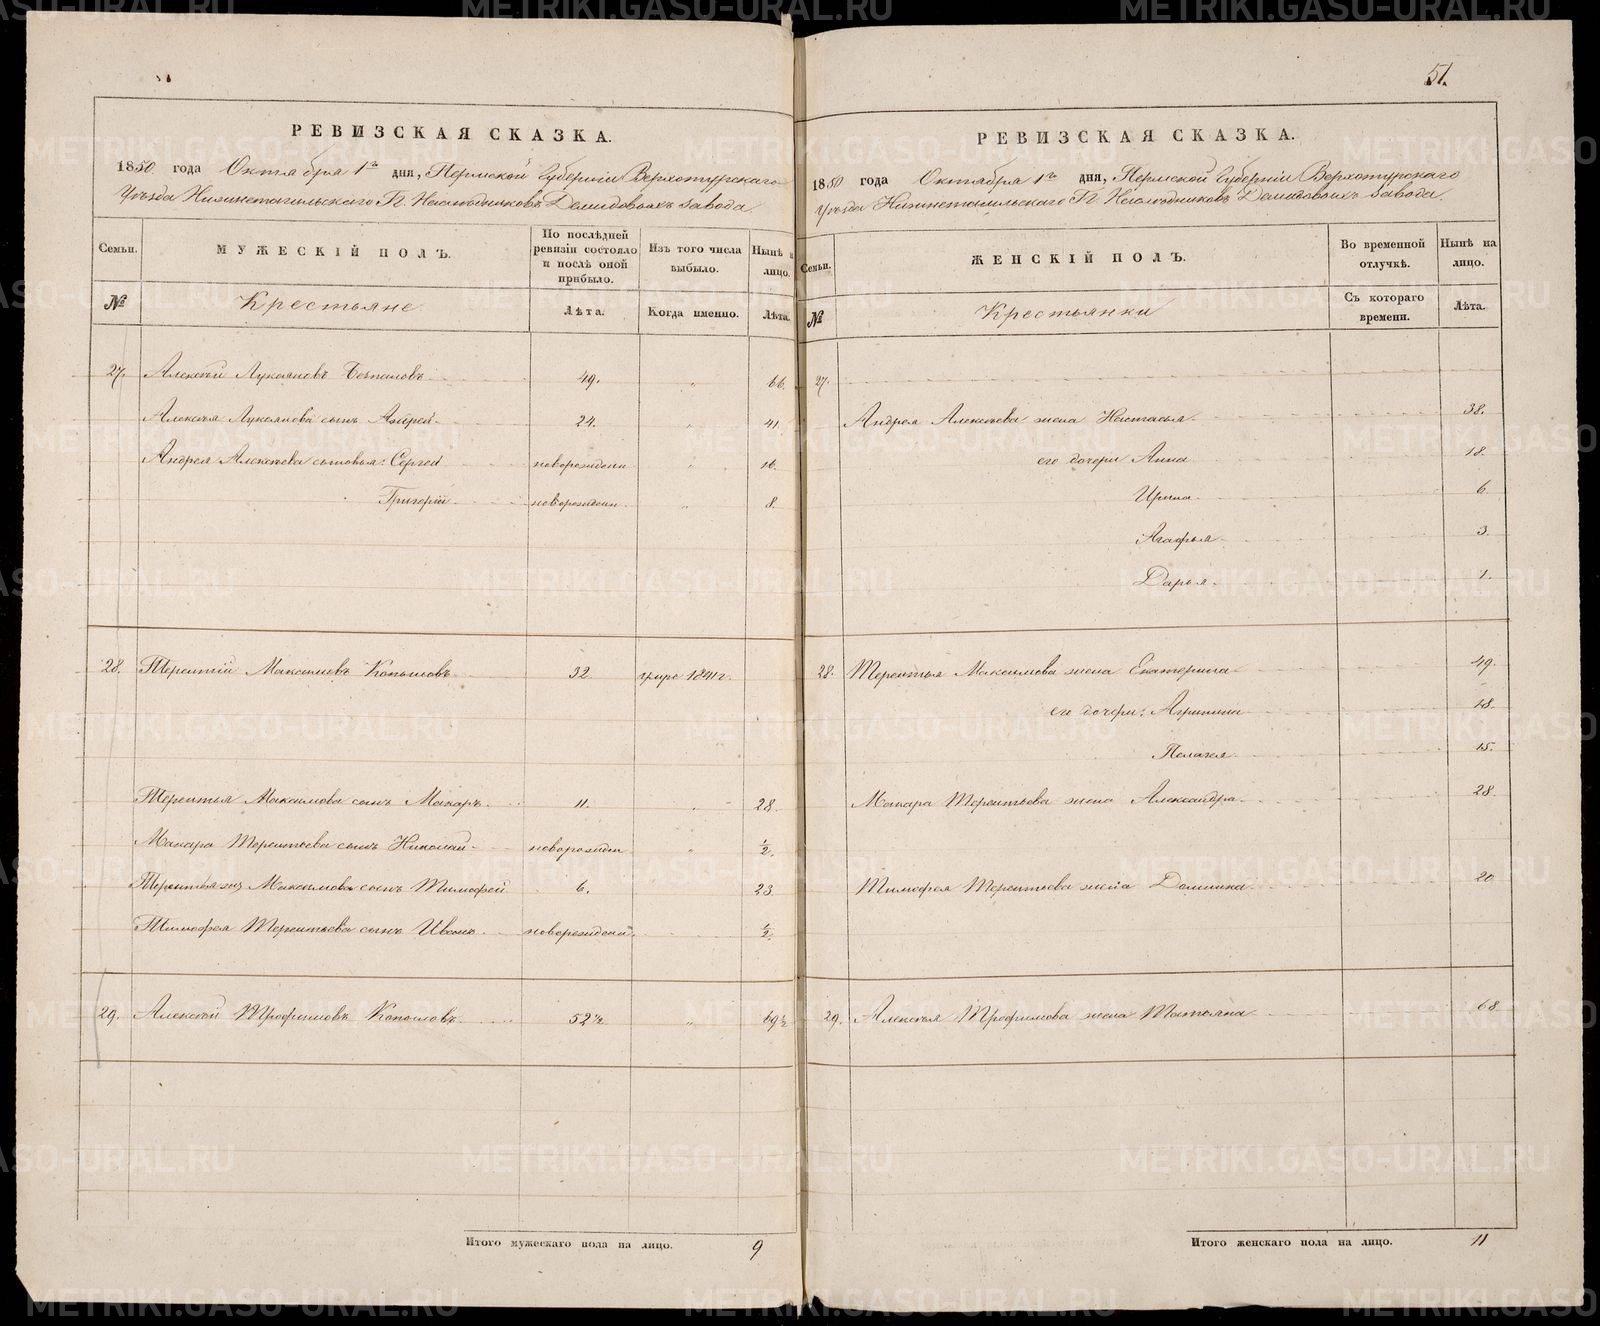 51.
РЕВИЗСКАЯ СКАЗКА.
1850 года Октября 1го дня, Пермской Губерніи Верхотурскаго
Уѣзда Нижнетагильскаго Гг. Наслѣдниковъ Демидовыхъ завода
Семьи.
МУЖЕСКІЙ ПОЛЪ.
По послѣдней ревизіи состояло и послѣ оной прибыло.
Изъ того числа выбыло.
Нынѣ на лицо.
№
Крестьяне
Лѣта.
Когда именно.
Лѣта.
27. Алексѣй Лукояновъ 49. „ 66.
Алексѣя Лукоянова сынъ Андрей 24. „ 41.
Андрея Алексѣева сыновья: Сергей новорожден „ 16.
Григорій новорожден „ 8.
28. Терентій Максимовъ Копыловъ 32. умре 1841 г.
Терентья Максимова сынъ Макаръ. 11. „ 28.
Макара Терентьева сынъ Николай новорожден „ 1/2.
Терентья Максимова сынъ Тимофей 6. 23
Тимофея Терентьева сынъ Иванъ новорожден. 1/2.
29. Алексѣй Трофимовъ Копыловъ. 52 1/2. „ 69 1/2
Итого мужескаго пола на лицо. 9
РЕВИЗСКАЯ СКАЗКА.
1850 года Октября 1го дня, Пермской Губерніи Верхотурскаго
Уѣзда Нижнетагильскаго Гг. Наслѣдниковъ Демидовыхъ завода.
Семьи.
ЖЕНСКІЙ ПОЛЪ.
Во временной отлучкѣ.
Нынѣ на лицо.
№
Крестьянки
Съ котораго времени.
Лѣта.
27.
Андрея Алексѣева жена Настасья 38.
его дочери Анна 18.
Ирина 6.
Агафья 3.
Дарья 1.
28. Терентья Максимова жена Екатерина 49.
его дочери: Агрипина 18.
Пелагея 15.
Макара Терентьева жена Александра 28.
Тимофея Терентьева жена Домника 20
29. Алексѣя Трофимова жена Татьяна 68.
Итого женскаго пола на лицо. 11
METRIKI.GASO-URAL.RU